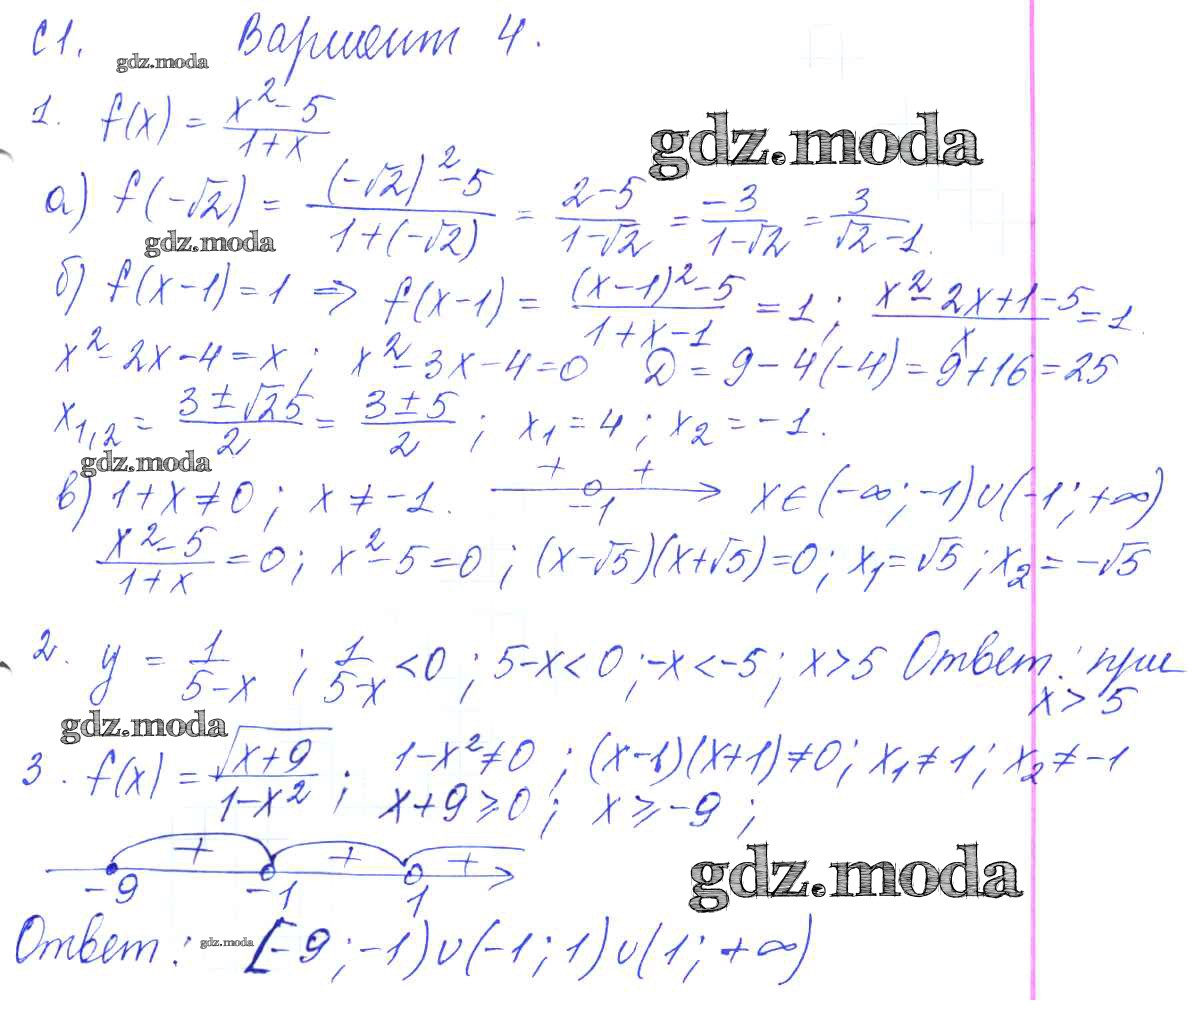 С1. Вариант 4.
gdz.moda
1. f(x) = (x² - 5)/(1+x)
gdz.moda
а) f(-√2) = ((-√2)² - 5)/(1+(-√2)) = (2-5)/(1-√2) = (-3)/(1-√2) = 3/(√2-1).
gdz.moda
б) f(x-1) = 1 ⇒ f(x-1) = ((x-1)² - 5)/(1+x-1) = 1; (x² - 2x+1-5)/x = 1.
x² - 2x - 4 = x; x² - 3x - 4 = 0 D = 9 - 4(-4) = 9+16 = 25
x₁,₂ = (3 ± √25)/2 = (3 ± 5)/2; x₁ = 4; x₂ = -1.
gdz.moda
в) 1+x ≠ 0; x ≠ -1. + + -1 x ∈ (-∞; -1) ∪ (-1; +∞)
(x² - 5)/(1+x) = 0; x² - 5 = 0; (x-√5)(x+√5) = 0; x₁ = √5; x₂ = -√5
2. y = 1/(5-x); 1/(5-x) < 0; 5-x < 0; -x < -5; x > 5 Ответ: при
x > 5
gdz.moda
3. f(x) = √(x+9)/(1-x²); 1-x² ≠ 0; (x-1)(x+1) ≠ 0; x₁ ≠ 1; x₂ ≠ -1
x+9 ≥ 0; x ≥ -9;
+ + +
-9 -1 1
gdz.moda
Ответ: gdz.moda [-9; -1) ∪ (-1; 1) ∪ (1; +∞)